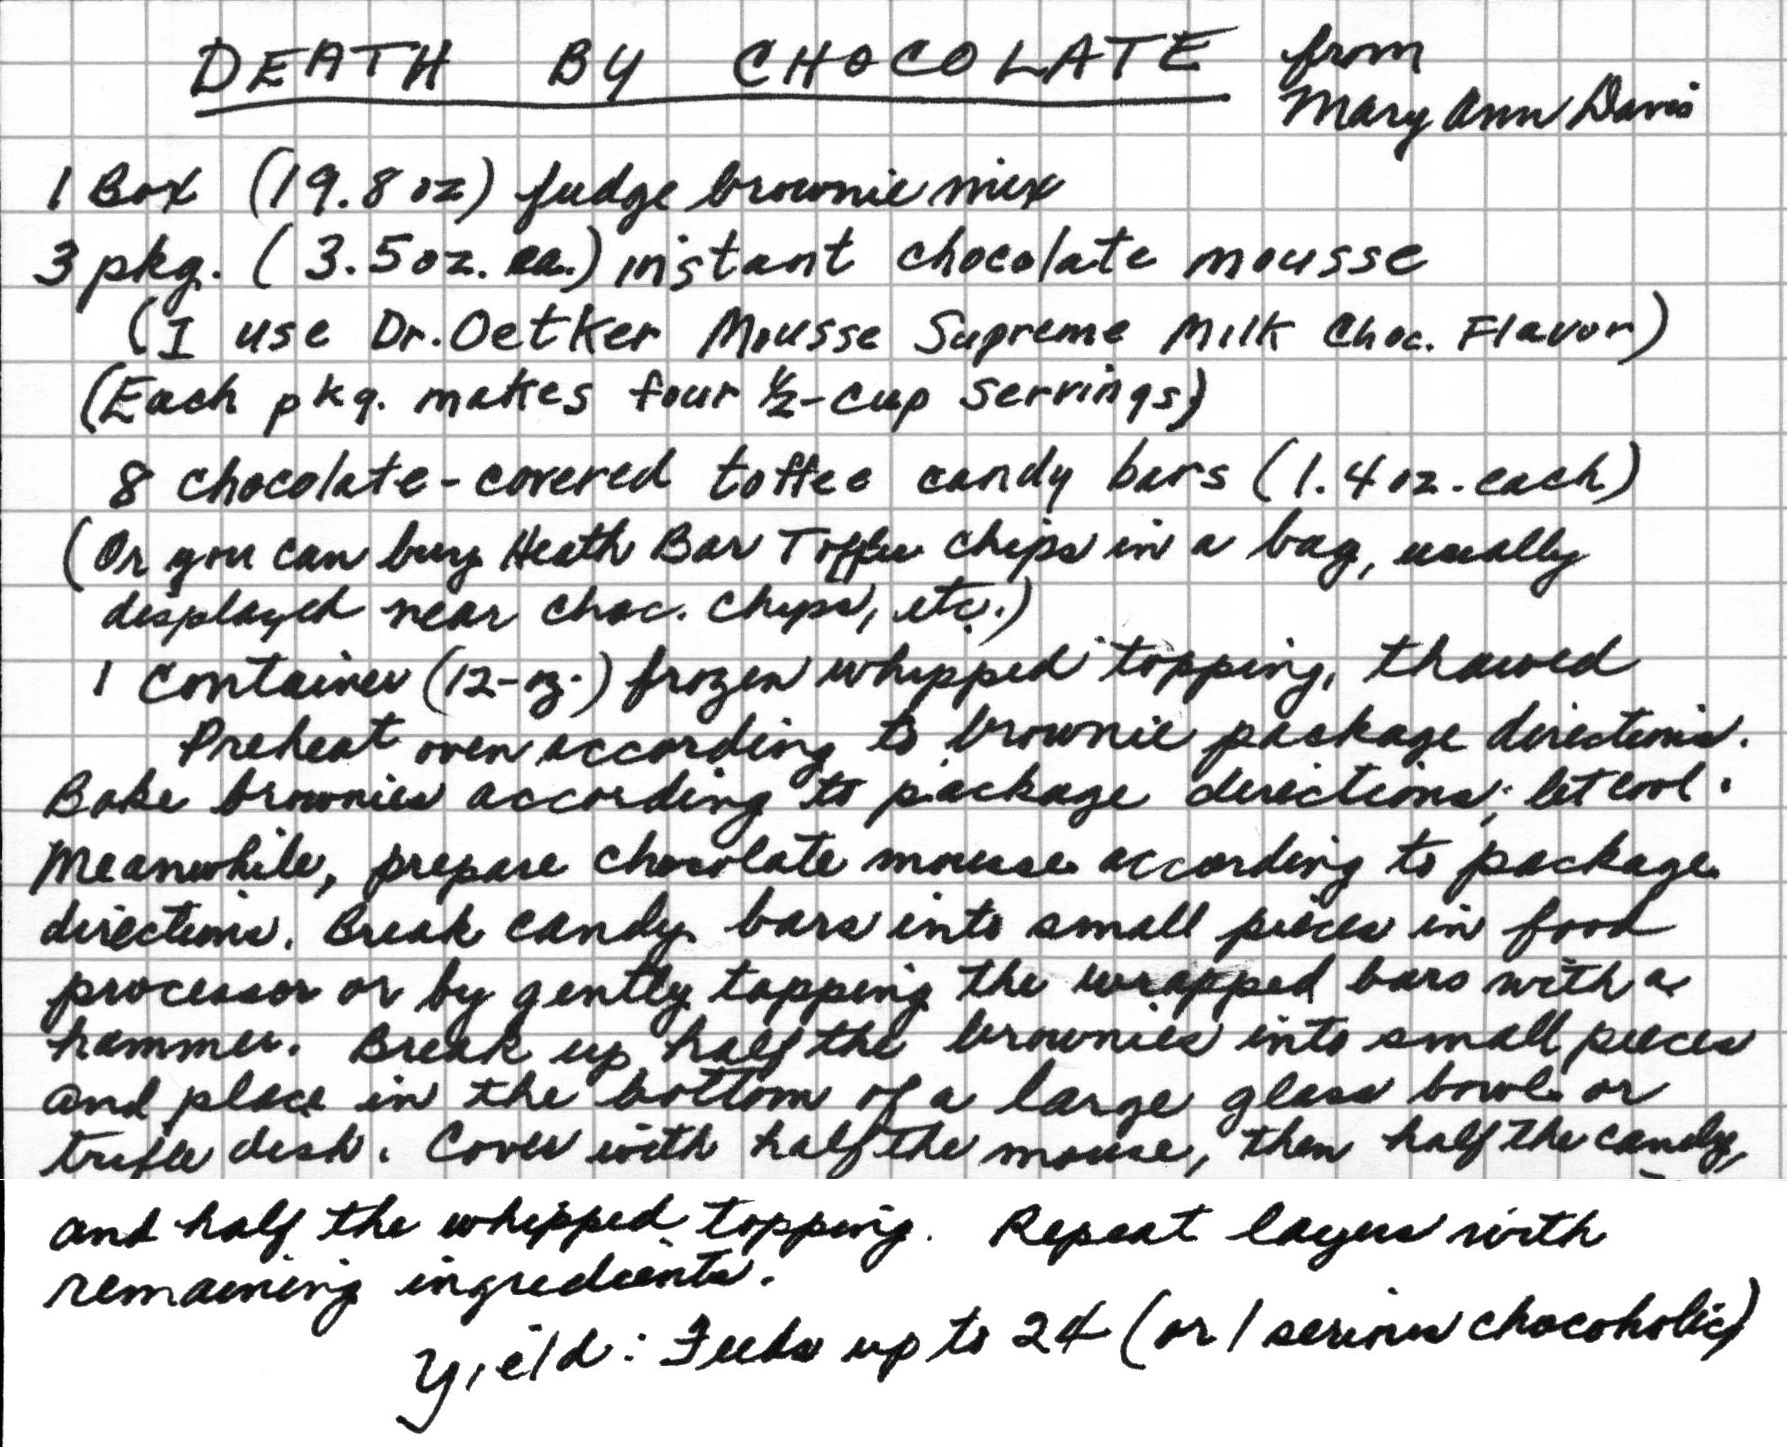 DEATH BY CHOCOLATE from
Mary Ann Davis
1 Box (19.8 oz) fudge brownie mix
3 pkg. (3.5 oz. ea.) instant chocolate mousse
(I use Dr. Oetker Mousse Supreme Milk Choc. Flavor)
(Each pkg. makes four ½-cup servings)
8 chocolate-covered toffee candy bars (1.4 oz. each)
(Or you can buy Heath Bar Toffee chips in a bag, usually
displayed near choc. chips, etc.)
1 container (12-oz.) frozen whipped topping, thawed
Preheat oven according to brownie package directions.
Bake brownies according to package directions; let cool.
Meanwhile, prepare chocolate mousse according to package
directions. Break candy bars into small pieces in food
processor or by gently tapping the wrapped bars with a
hammer. Break up half the brownies into small pieces
and place in the bottom of a large glass bowl or
trifle dish. Cover with half the mouse, then half the candy,
and half the whipped topping. Repeat layers with
remaining ingredients.
Yield: Feeds up to 24 (or 1 serious chocoholic)